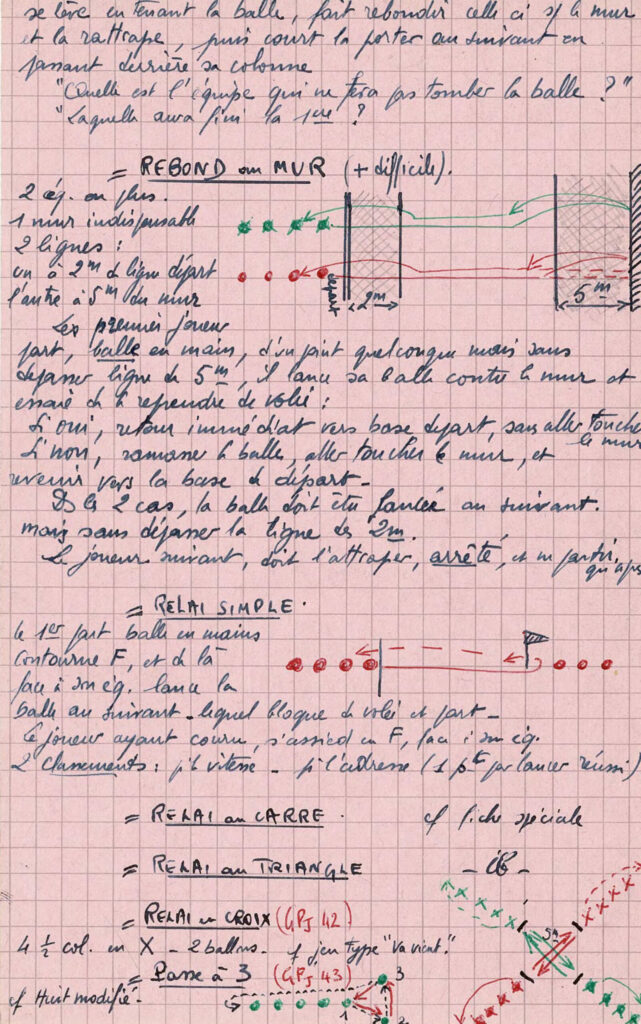 se lève en tenant la balle, fait rebondir celle ci s/ le mur
et la rattrape, puis court la porter au suivant en
passant derrière sa colonne
"Quelle est l'équipe qui ne fera pas tomber la balle ?"
"Laquelle aura fini la 1ère ?
= REBOND au MUR (+ difficile).
2 éq. ou plus.
1 mur indispensable
2 lignes :
un à 2m de ligne départ
l'autre à 5m du mur
départ
2m
5m
Les premier joueur
part, balle en main, d'un point quelconque mais sans
dépasser ligne de 5m, il lance sa balle contre le mur et
essaie de la reprendre de volée :
Si oui, retour immédiat vers base départ, sans aller toucher
le mur
Si non, ramasser la balle, aller toucher le mur, et
revenir vers la base de départ -
Ds les 2 cas, la balle doit être lancée au suivant.
mais sans dépasser la ligne des 2m.
Le joueur suivant, doit l'attraper, arrêté, et ne partir,
qu'après
= RELAI SIMPLE .
le 1er part balle en mains
contourne F, et de là
face à son éq. lance la
balle au suivant - lequel bloque de volée et part -
le joueur ayant couru, s'assied en F, face à son éq.
2 classements : pr la vitesse - pr l'adresse (1 pt par lancer réussi)
= RELAI au CARRE . cf fiche spéciale
= RELAI au TRIANGLE - id -
= RELAI en CROIX (GPJ 42)
5m
4 1/2 col. en X - 2 ballons - cf jeu type "Va vient".
= Passe à 3 (GPJ 43)
cf Huit modifié -
1
2
3